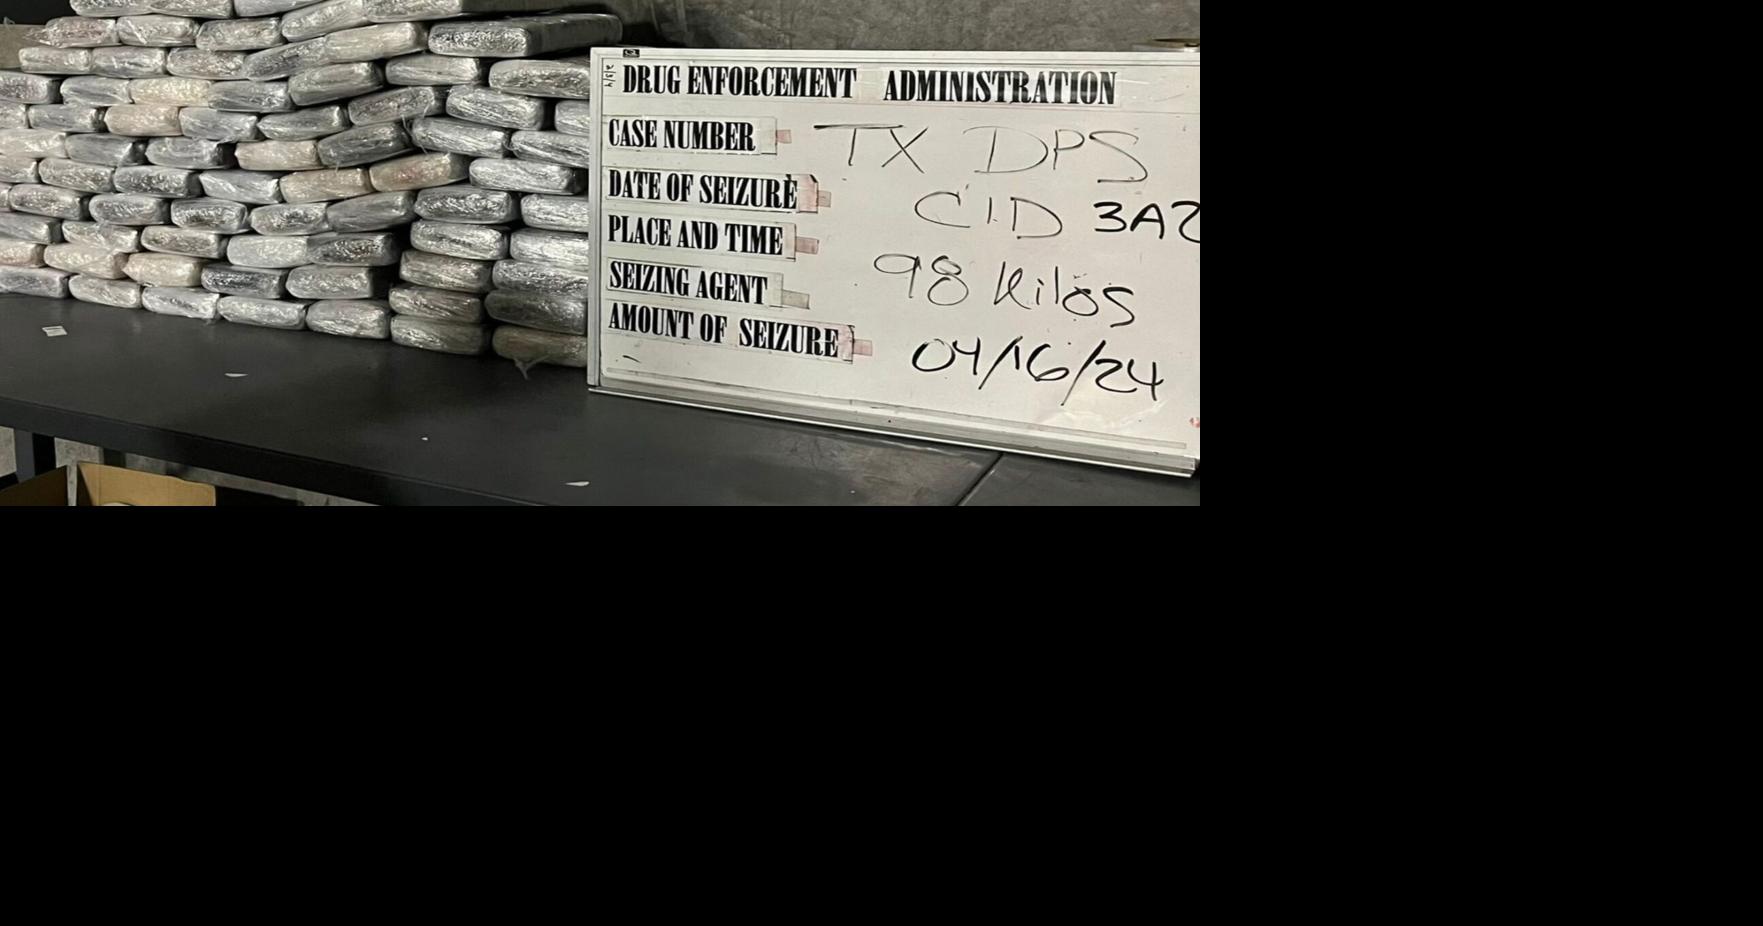 DRUG ENFORCEMENT ADMINISTRATION
CASE NUMBER TX DPS
DATE OF SEIZURE CID 3A2
PLACE AND TIME
SEIZING AGENT 98 Kilos
AMOUNT OF SEIZURE 04/16/24